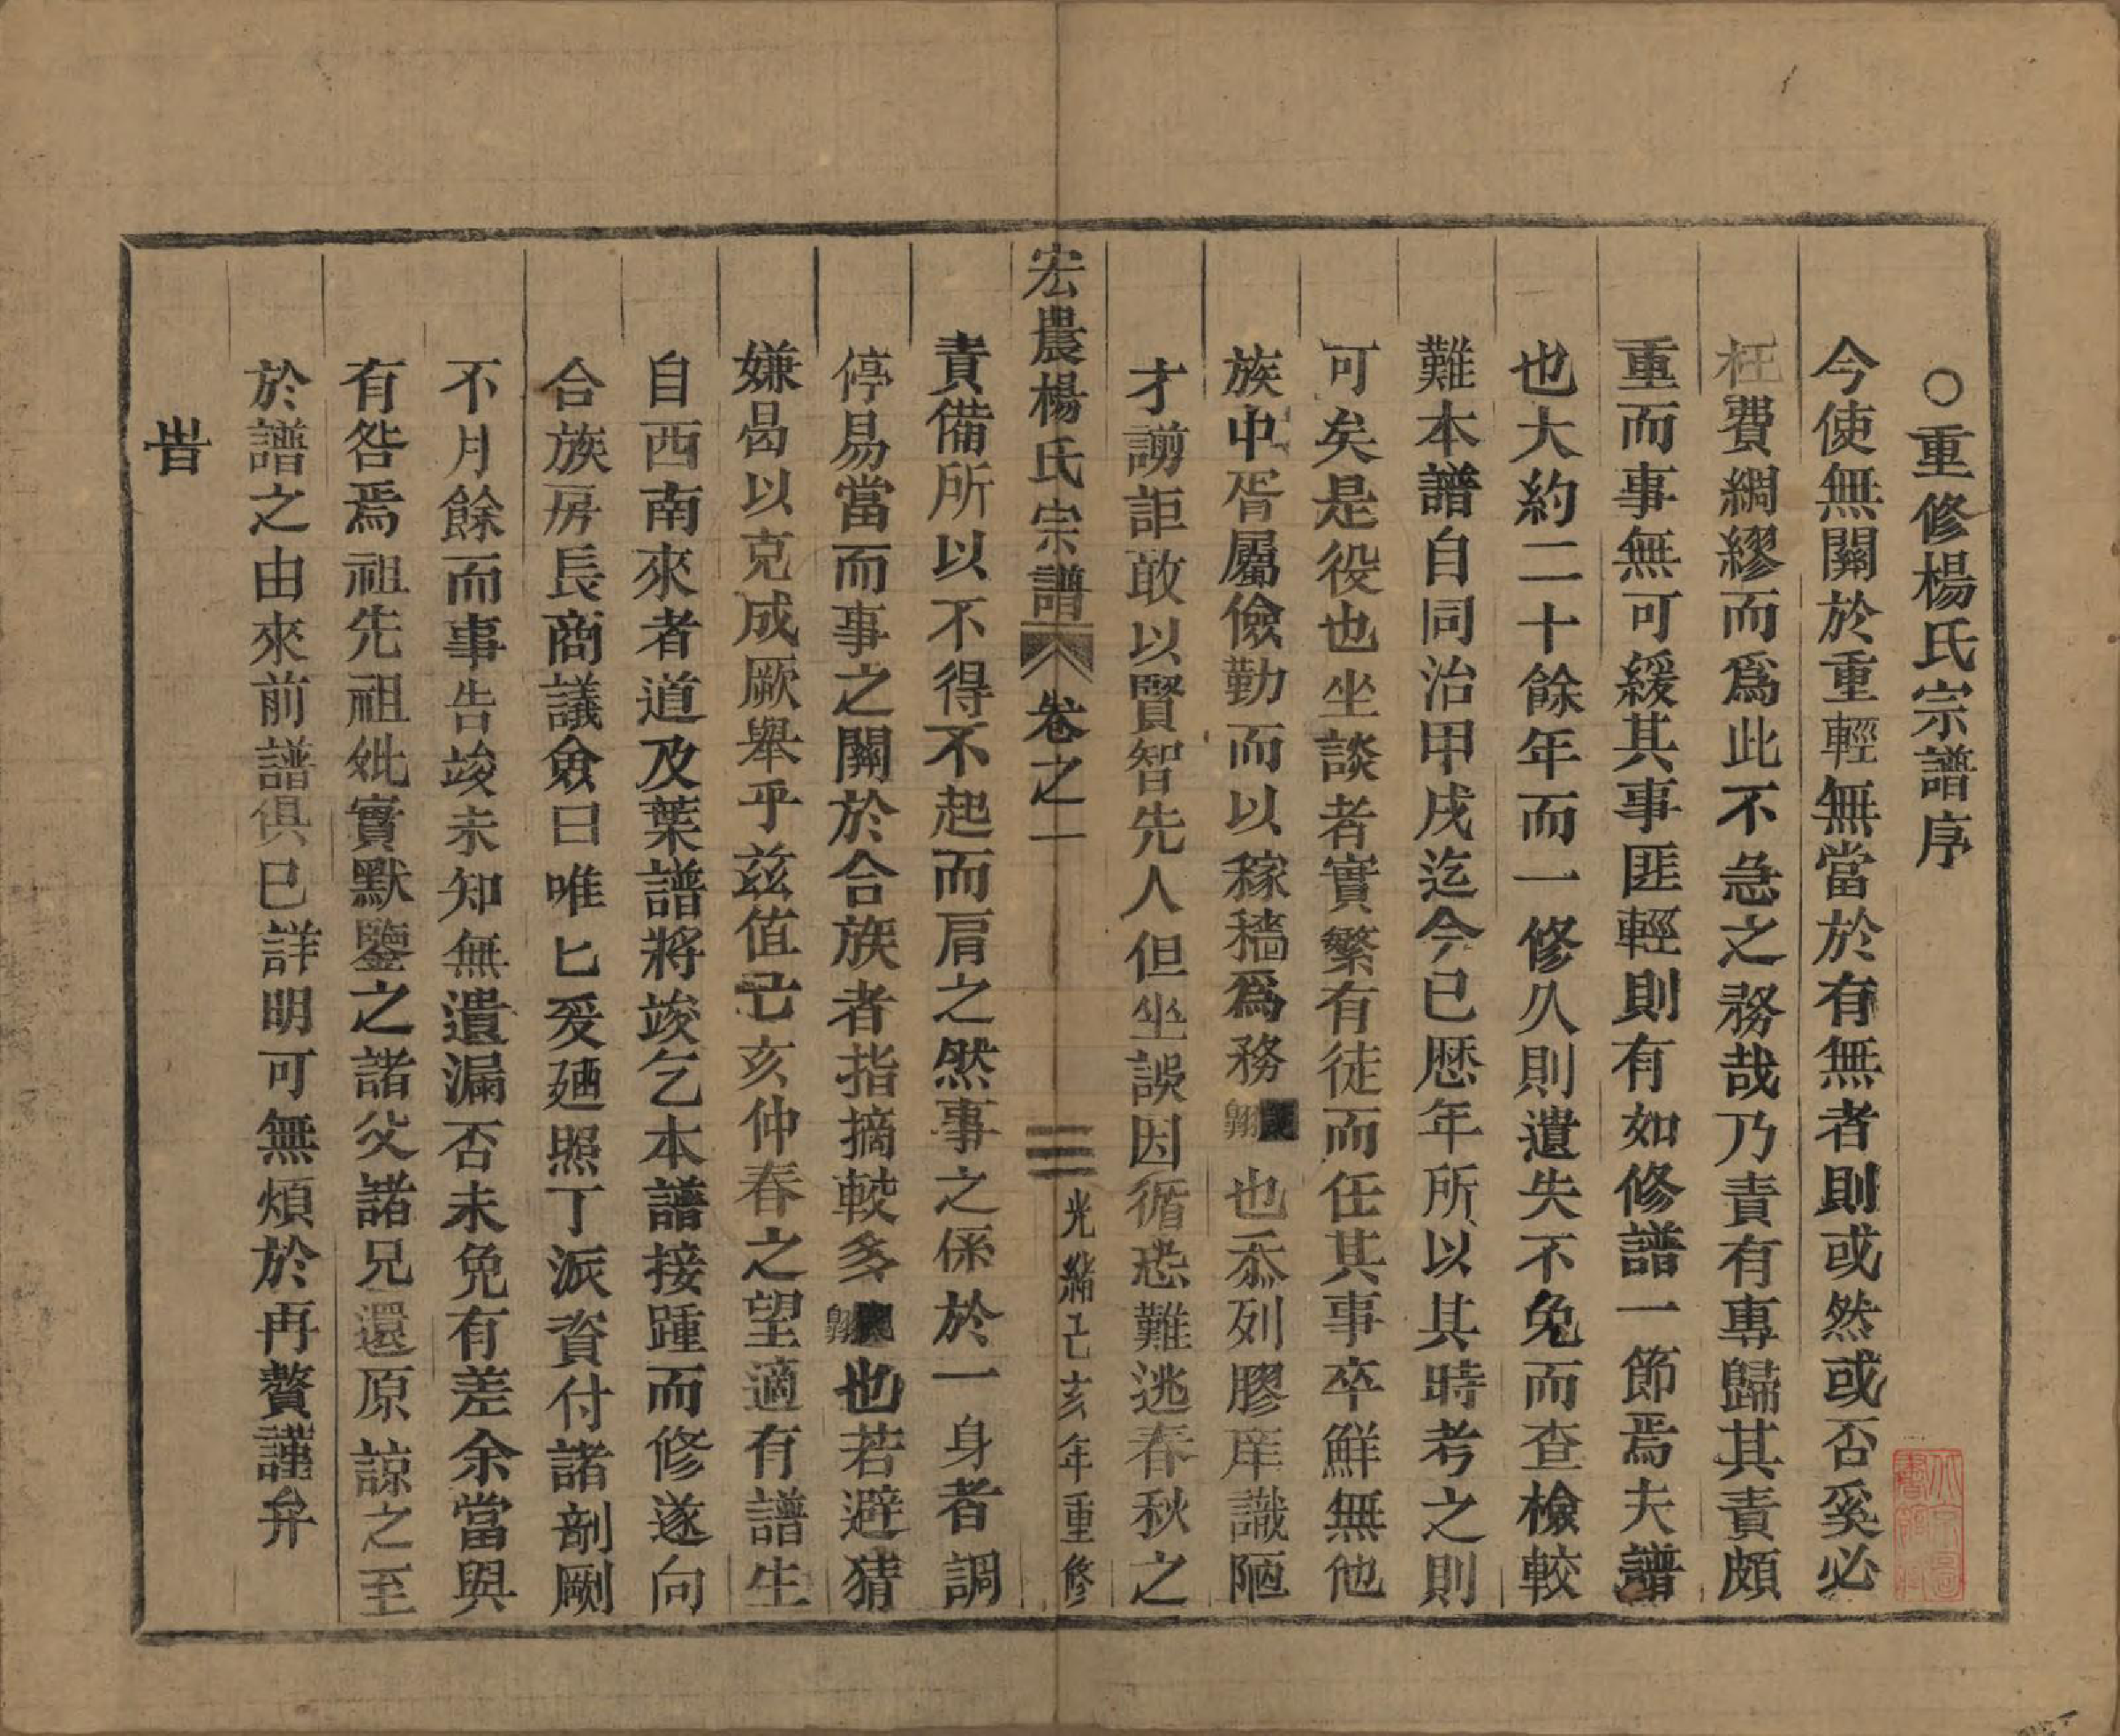 ○重修楊氏宗譜序
今使無關於重輕無當於有無者則或然或否奚必
枉費綢繆而爲此不急之務哉乃責有專歸其責頗
重而事無可緩其事匪輕則有如修譜一節焉夫譜
也大約二十餘年而一修久則遺失不免而查檢較
難本譜自同治甲戌迄今已歷年所以其時考之則
可矣是役也坐談者實繁有徒而任其事卒鮮無他
族中胥屬儉勤而以稼穡爲務翱也忝列膠庠識陋
才謭詎敢以賢智先人但坐誤因循恐難逃春秋之
宏農楊氏宗譜 卷之一 三 光緒己亥年重修
責備所以不得不起而肩之然事之係於一身者調
停易當而事之關於合族者指摘較多翱也若避猜
嫌曷以克成厥舉乎茲值己亥仲春之望適有譜生
自西南來者道及葉譜將竣乞本譜接踵而修遂向
合族房長商議僉曰唯匕爰廼照丁派資付諸剞劂
不月餘而事告竣未知無遺漏否未免有差余當與
有咎焉祖先祖妣實默鑒之諸父諸兄還原諒之至
於譜之由來前譜俱已詳明可無煩於再贅謹弁
旹